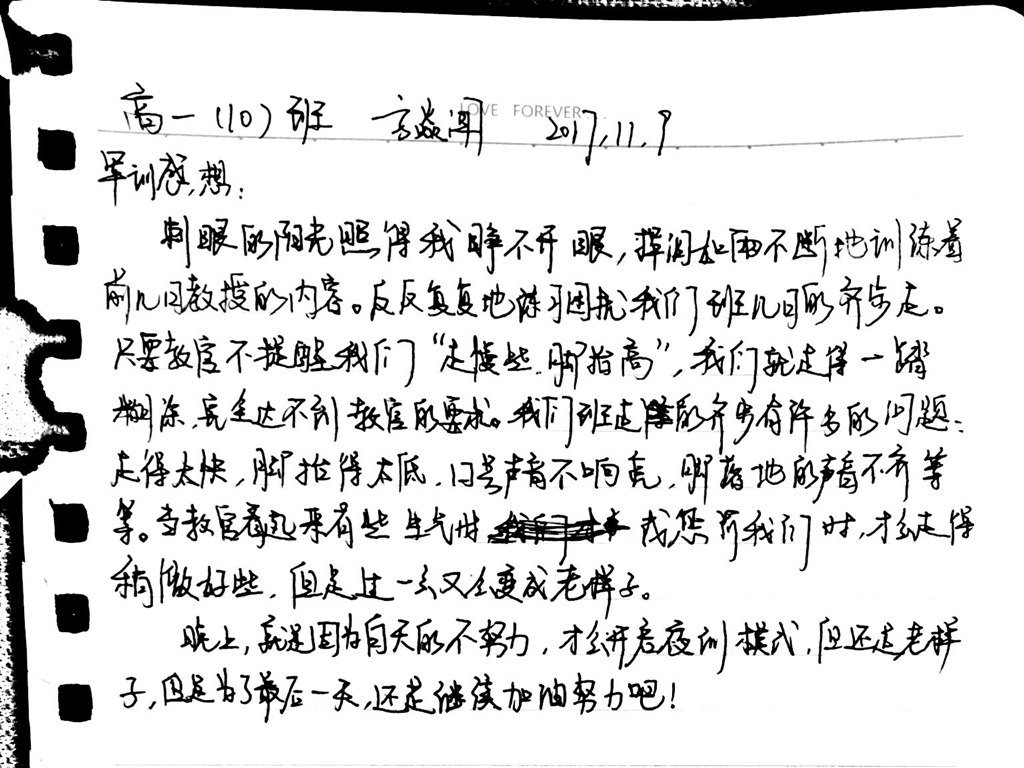 LOVE FOREVER
高一(10)班 方焱闻 2017.11.9
军训感想:
刺眼的阳光照得我睁不开眼,挥汗如雨不断地训练着
前几日教授的内容。反反复复地练习困扰我们班几日的齐步走。
只要教官不提醒我们“走慢些,脚抬高”,我们就走得一塌
糊涂,完全达不到教官的要求。我们班走的齐步有许多的问题:
走得太快,脚抬得太低,口号声音不响亮,脚落地的声音不齐等
等。当教官看起来有些生气时 或惩罚我们时,才会走得
稍微好些,但是过一会又会变成老样子。
晚上,就是因为白天的不努力,才会开启夜训模式,但还是老样
子,但是为了最后一天,还是继续加油努力吧!